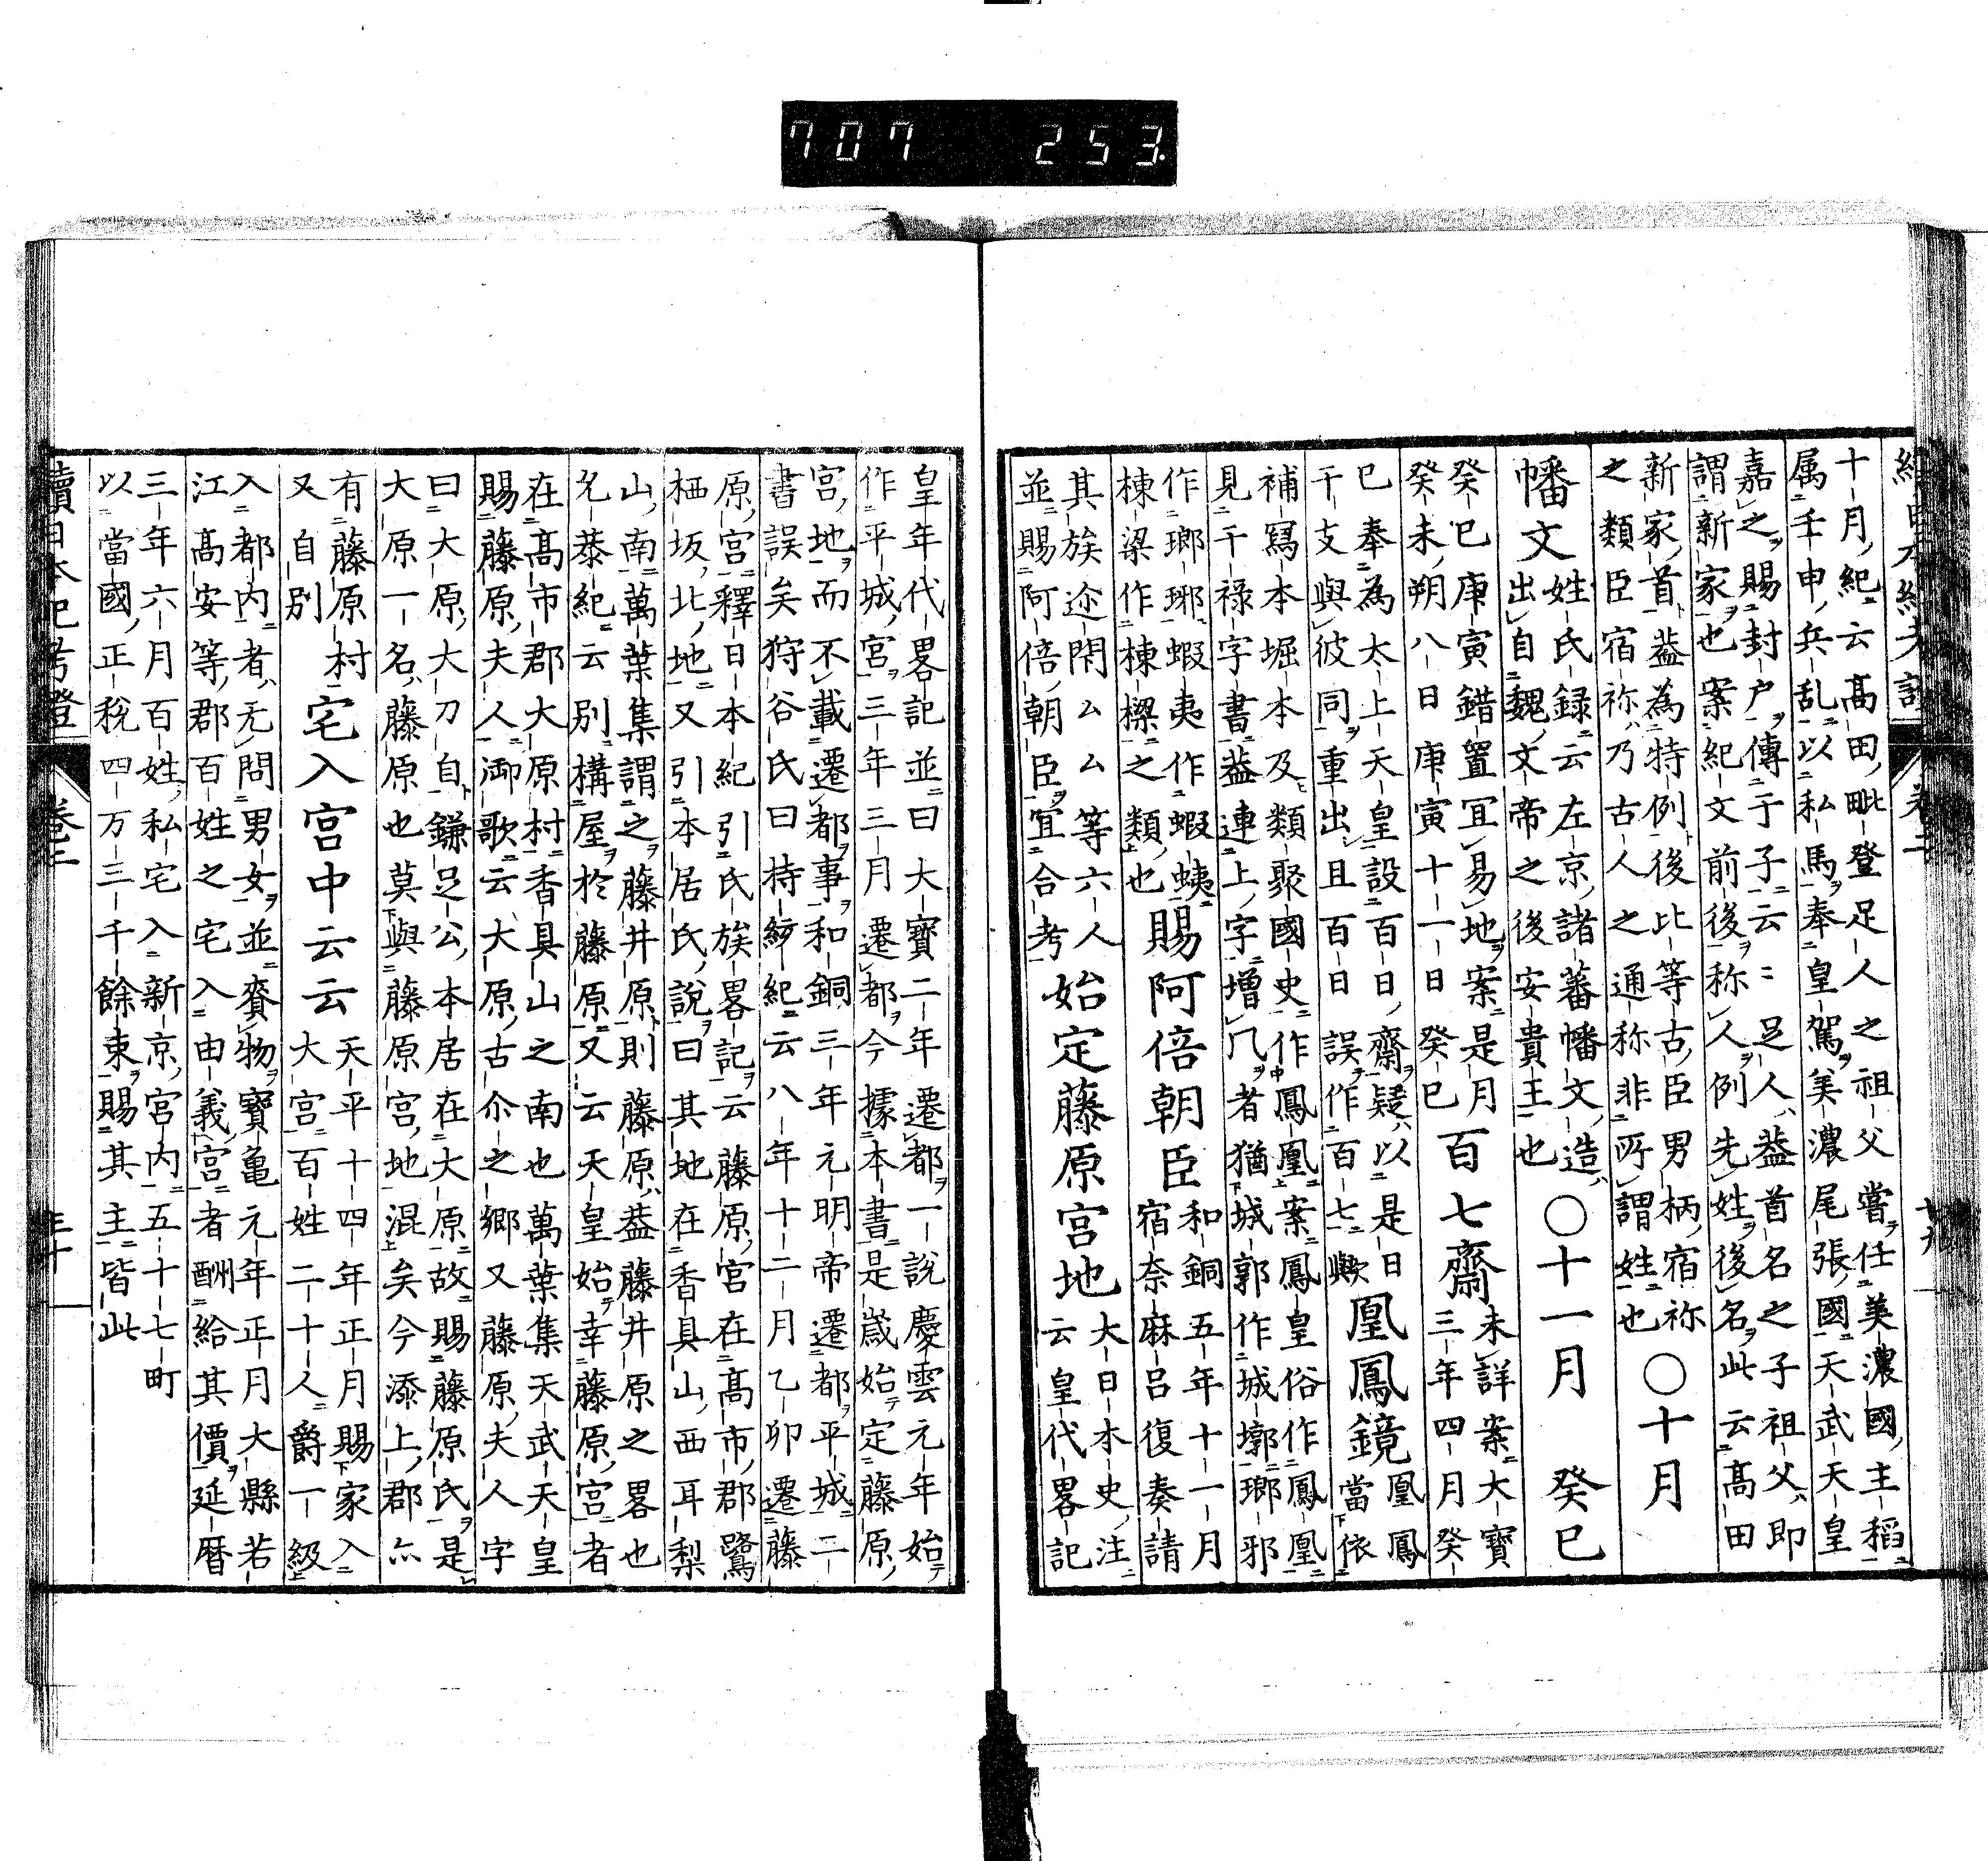 707 253.
十月紀云髙田毗登足人之祖父嘗任美濃國主稻
属壬申兵乱以私馬奉皇駕美濃尾張國天武天皇
嘉之賜封户傳于子云〻足人蓋首名之子祖父即
謂新家也案紀文前後称人例先姓後名此云髙田
新家首蓋為特例後比等古臣男柄宿祢
之類臣宿祢乃古人之通称非所謂姓也
○十月
幡文
姓氏録云左京諸蕃幡文造
出自魏文帝之後安貴王也
○十一月 癸巳
癸巳庚寅錯置冝易地案是月
癸未朔八日庚寅十一日癸巳
百七齋
未詳案大寶
三年四月癸
巳奉為太上天皇設百日齋疑以是日
干支與彼同重出且百日誤作百七歟
凰鳳鏡
凰鳳
當依
補寫本堀本及類聚國史作鳳凰案鳳皇俗作鳳凰
見干禄字書蓋連上字增凡者猶城郭作城墎瑯邪
作瑯琊蝦夷作蝦蛦
棟梁作棟樑之類也
賜阿倍朝臣
和銅五年十一月
宿奈麻吕復奏請
其族迩閇厶厶等六人
並賜阿倍朝臣宜合考
始定藤原宮地
大日本史注
云皇代畧記
皇年代畧記並曰大寶二年遷都一說慶雲元年始
作平城宮三年三月遷都今據本書是歳始定藤原
宮地而不載遷都事和銅三年元明帝遷都平城二
書誤矣狩谷氏曰持綂紀云八年十二月乙卯遷藤
原宮釋日本紀引氏族畧記云藤原宮在髙市郡鷺
栖坂北地又引本居氏說曰其地在香具山西耳梨
山南萬葉集謂之藤井原則藤原蓋藤井原之畧也
允恭紀云别構屋於藤原又云天皇始幸藤原宮者
在髙市郡大原村香具山之南也萬葉集天武天皇
賜藤原夫人御歌云大原古尒之鄉又藤原夫人字
曰大原大刀自鎌足公本居在大原故賜藤原氏是
大原一名藤原也莫與藤原宮地混矣今添上郡亦
有藤原村
又自别
宅入宮中云云
天平十四年正月賜家入
大宮百姓二十人爵一級
入都内者无問男女並賚物寶亀元年正月大縣若
江髙安等郡百姓之宅入由義宮者酬給其價延暦
三年六月百姓私宅入新京宮内五十七町
以當國正税四万三千餘束賜其主皆此
續日本紀考證 卷二 三十